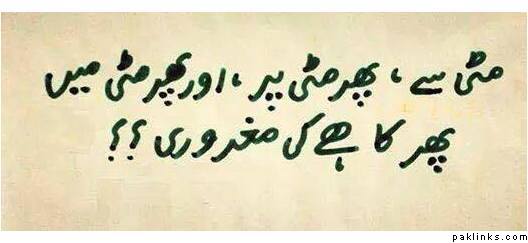 مٹی سے ، پھر مٹی پر ، اور پھر مٹی میں
پھر کاہے کی مغروری ؟؟
paklinks.com